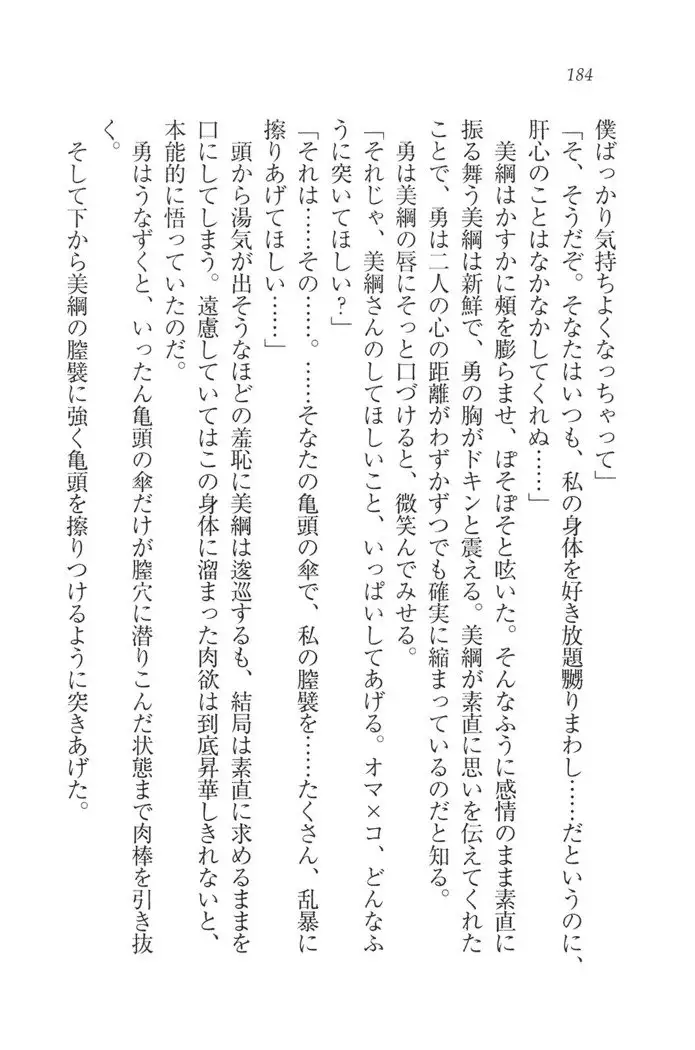 184
僕ばっかり気持ちよくなっちゃって」
「そ、そうだぞ。そなたはいつも、私の身体を好き放題嬲りまわし……だというのに、
肝心のことはなかなかしてくれぬ……」
美綱はかすかに頬を膨らませ、ぽそぽそと呟いた。そんなふうに感情のまま素直に
振る舞う美綱は新鮮で、勇の胸がドキンと震える。美綱が素直に思いを伝えてくれた
ことで、勇は二人の心の距離がわずかずつでも確実に縮まっているのだと知る。
勇は美綱の唇にそっと口づけると、微笑んでみせる。
「それじゃ、美綱さんのしてほしいこと、いっぱいしてあげる。オマ×コ、どんなふ
うに突いてほしい?」
「それは……その……。……そなたの亀頭の傘で、私の膣襞を……たくさん、乱暴に
擦りあげてほしい……」
頭から湯気が出そうなほどの羞恥に美綱は逡巡するも、結局は素直に求めるままを
口にしてしまう。遠慮していてはこの身体に溜まった肉欲は到底昇華しきれないと、
本能的に悟っていたのだ。
勇はうなずくと、いったん亀頭の傘だけが膣穴に潜りこんだ状態まで肉棒を引き抜
く。
そして下から美綱の膣襞に強く亀頭を擦りつけるように突きあげた。